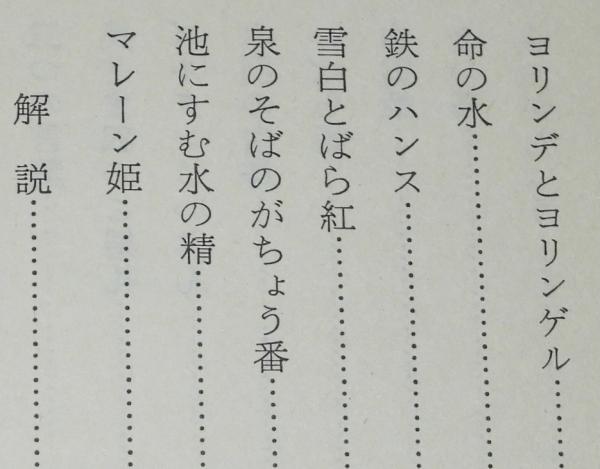 ヨリンデとヨリンゲル…………
命の水…………………………
鉄のハンス……………………
雪白とばら紅…………………
泉のそばのがちょう番………
池にすむ水の精………………
マレーン姫……………………
解説……………………………